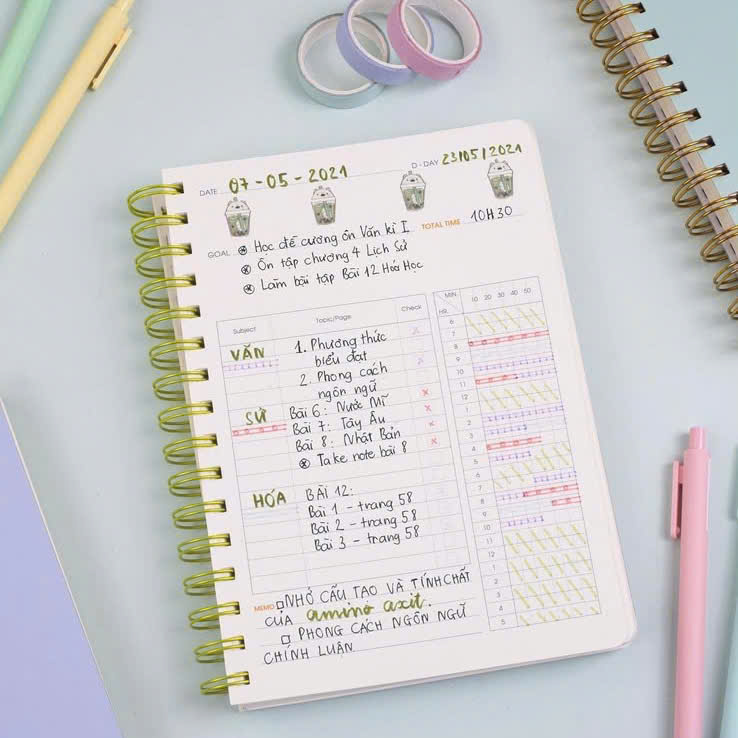 DATE 07-05-2021 D-DAY 23/05/2021
GOAL ⊛ Học đề cương ôn Văn kì I TOTAL TIME 10H30
⊛ Ôn tập chương 4 Lịch Sử
⊛ Làm bài tập Bài 12 Hóa Học
Subject Topic/Page Check
VĂN 1. Phương thức
biểu đạt
2. Phong cách
ngôn ngữ
SỬ Bài 6: Nước Mĩ ×
Bài 7: Tây Âu ×
Bài 8: Nhật Bản ×
⊛ Take note bài 8 ×
HÓA BÀI 12:
Bài 1 - trang 58
Bài 2 - trang 58
Bài 3 - trang 58
MIN. 10 20 30 40 50
HR.
6
7
8
9
10
11
12
1
2
3
4
5
6
7
8
9
10
11
12
1
2
3
4
5
MEMO □ NHỚ CẤU TẠO VÀ TÍNH CHẤT
CỦA amino axit.
□ PHONG CÁCH NGÔN NGỮ
CHÍNH LUẬN